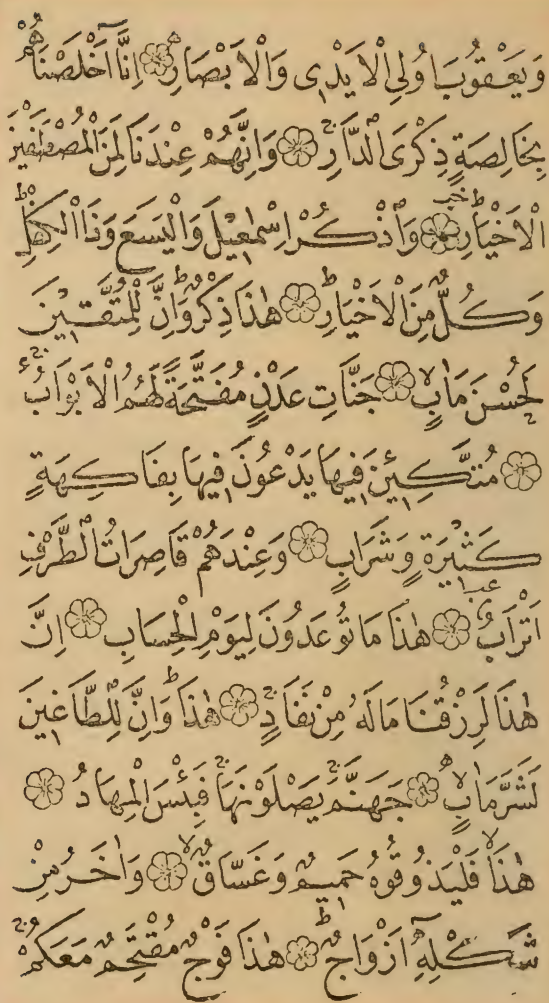 وَيَعْقُوبَ اُولِي الْاَيْدٖى وَالْاَبْصَارِ ۝ اِنَّٓا اَخْلَصْنَاهُمْ
بِخَالِصَةٍ ذِكْرَى الدَّارِۚ ۝ وَاِنَّهُمْ عِنْدَنَا لَمِنَ الْمُصْطَفَيْنَ
الْاَخْيَارِۜ ۝ وَاذْكُرْ اِسْمٰعٖيلَ وَالْيَسَعَ وَذَا الْكِفْلِۜ
وَكُلٌّ مِنَ الْاَخْيَارِۜ ۝ هٰذَا ذِكْرٌۜ وَاِنَّ لِلْمُتَّقٖينَ
لَحُسْنَ مَاٰبٍۙ ۝ جَنَّاتِ عَدْنٍ مُفَتَّحَةً لَهُمُ الْاَبْوَابُۚ
۝ مُتَّكِـٖٔينَ فٖيهَا يَدْعُونَ فٖيهَا بِفَاكِهَةٍ
كَثٖيرَةٍ وَشَرَابٍ ۝ وَعِنْدَهُمْ قَاصِرَاتُ الطَّرْفِ
اَتْرَابٌ ۝ هٰذَا مَا تُوعَدُونَ لِيَوْمِ الْحِسَابِ ۝ اِنَّ
هٰذَا لَرِزْقُنَا مَا لَهُ مِنْ نَفَادٍۚ ۝ هٰذَاۜ وَاِنَّ لِلطَّاغٖينَ
لَشَرَّ مَاٰبٍۙ ۝ جَهَنَّمَۚ يَصْلَوْنَهَاۚ فَبِئْسَ الْمِهَادُ ۝
هٰذَاۙ فَلْيَذُوقُوهُ حَمٖيمٌ وَغَسَّاقٌۙ ۝ وَاٰخَرُ مِنْ
شَكْلِهٖٓ اَزْوَاجٌۜ ۝ هٰذَا فَوْجٌ مُقْتَحِمٌ مَعَكُمْۚ